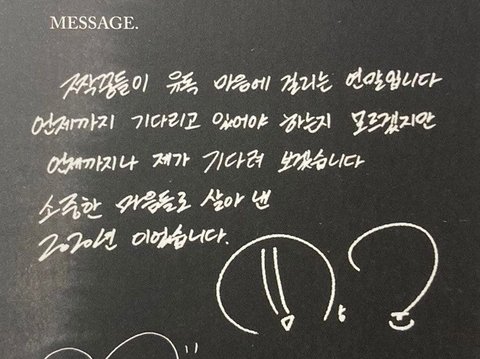 MESSAGE.
짝꿍들이 유독 마음에 걸리는 연말입니다
언제까지 기다리고 있어야 하는지 모르겠지만
언제까지나 제가 기다려 보겠습니다
소중한 마음들로 살아 낸
2020년 이었습니다.